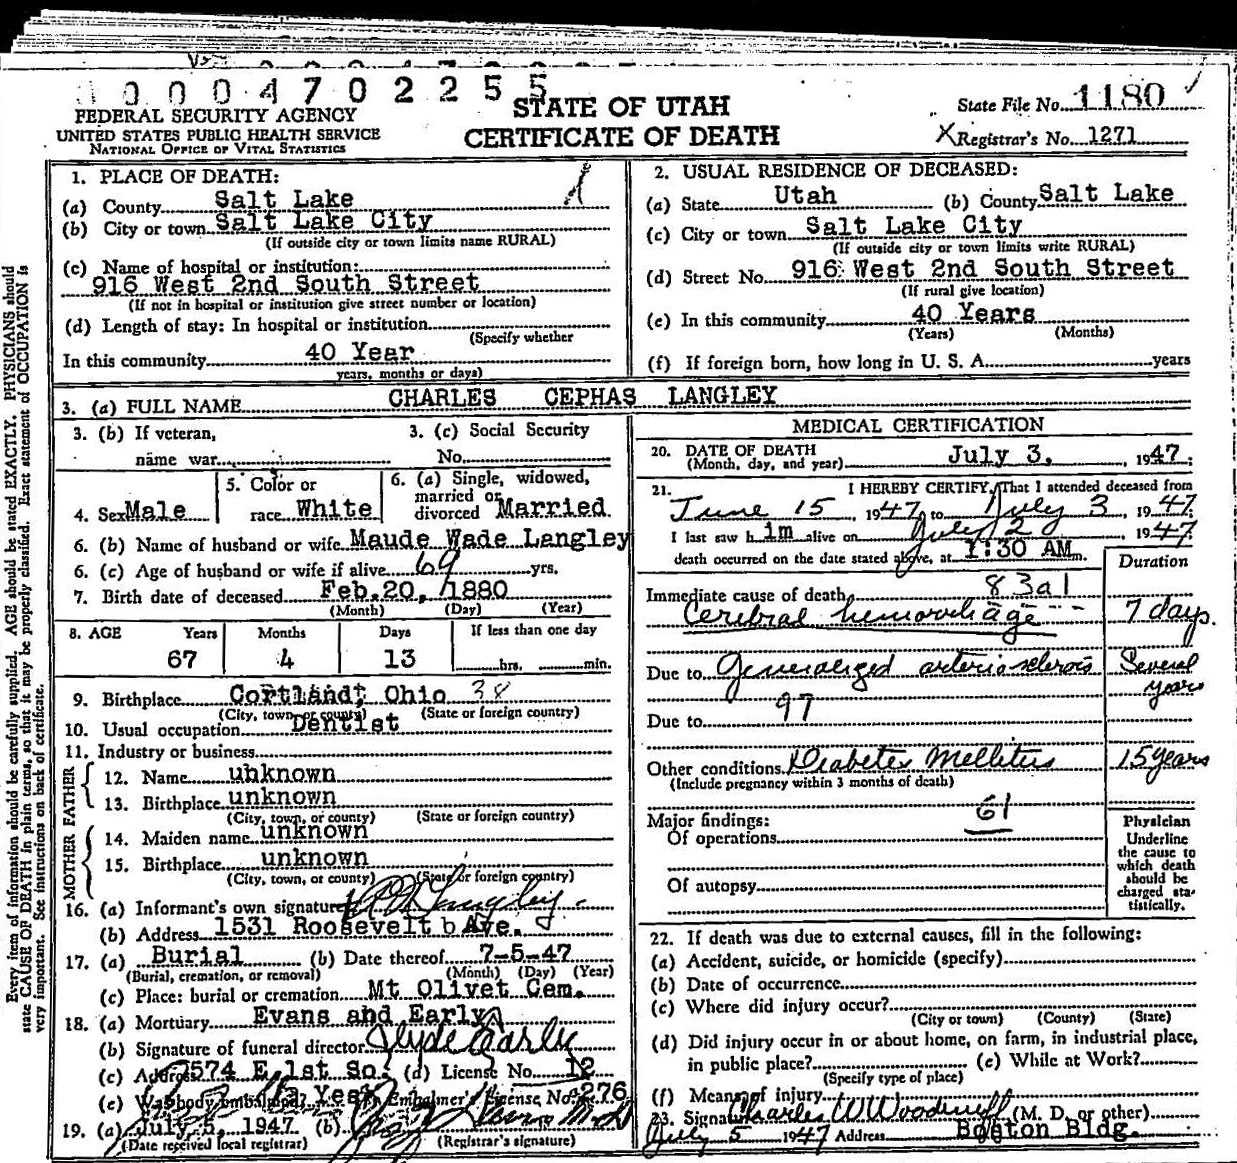 0 0 0 4 7 0 2 2 5 5
STATE OF UTAH
CERTIFICATE OF DEATH
FEDERAL SECURITY AGENCY
UNITED STATES PUBLIC HEALTH SERVICE
NATIONAL OFFICE OF VITAL STATISTICS
State File No. 1180
X Registrar's No. 1271
Every item of information should be carefully supplied. AGE should be stated EXACTLY. PHYSICIANS should
state CAUSE OF DEATH in plain terms, so that it may be properly classified. Exact statement of OCCUPATION is
very important. See instructions on back of certificate.
1. PLACE OF DEATH:
(a) County Salt Lake
(b) City or town Salt Lake City
(If outside city or town limits name RURAL)
(c) Name of hospital or institution:
916 West 2nd South Street
(If not in hospital or institution give street number or location)
(d) Length of stay: In hospital or institution
(Specify whether
In this community 40 Year
years, months or days)
2. USUAL RESIDENCE OF DECEASED:
(a) State Utah (b) County Salt Lake
(c) City or town Salt Lake City
(If outside city or town limits write RURAL)
(d) Street No. 916 West 2nd South Street
(If rural give location)
(e) In this community 40 Years
(Years) (Months)
(f) If foreign born, how long in U. S. A. years
3. (a) FULL NAME CHARLES CEPHAS LANGLEY
3. (b) If veteran,
name war
3. (c) Social Security
No.
4. Sex Male
5. Color or
race White
6. (a) Single, widowed,
married or
divorced Married
6. (b) Name of husband or wife Maude Wade Langley
6. (c) Age of husband or wife if alive 69 yrs.
7. Birth date of deceased Feb. 20, 1880
(Month) (Day) (Year)
8. AGE Years Months Days If less than one day
67 4 13 hrs. min.
9. Birthplace Cortland, Ohio 38
(City, town, or county) (State or foreign country)
10. Usual occupation Dentist
11. Industry or business
FATHER
12. Name unknown
13. Birthplace unknown
(City, town, or county) (State or foreign country)
MOTHER
14. Maiden name unknown
15. Birthplace unknown
(City, town, or county) (State or foreign country)
16. (a) Informant's own signature Langley
(b) Address 1531 Roosevelt Ave.
17. (a) Burial (b) Date thereof 7-5-47
(Burial, cremation, or removal) (Month) (Day) (Year)
(c) Place: burial or cremation Mt Olivet Cem.
18. (a) Mortuary Evans and Early
(b) Signature of funeral director Clyde Early
(c) Address 574 E. 1st So. (d) License No. 12
(e) Was body embalmed? Yes Embalmer's License No. 276
19. (a) July 5, 1947 (b)
(Date received local registrar) (Registrar's signature)
MEDICAL CERTIFICATION
20. DATE OF DEATH
(Month, day, and year) July 3, 1947
21. I HEREBY CERTIFY, That I attended deceased from
June 15, 1947 to July 3, 1947
I last saw him alive on July 2 1947
death occurred on the date stated above, at 1:30 AM m.
Duration
Immediate cause of death 83a1
Cerebral hemorrhage 7 days.
Due to Generalized arteriosclerosis Several years
97
Due to
Other conditions Diabetes Mellitus 15 years
(Include pregnancy within 3 months of death)
61
Major findings:
Of operations
Of autopsy
Physician
Underline
the cause to
which death
should be
charged sta-
tistically.
22. If death was due to external causes, fill in the following:
(a) Accident, suicide, or homicide (specify)
(b) Date of occurrence
(c) Where did injury occur?
(City or town) (County) (State)
(d) Did injury occur in or about home, on farm, in industrial place,
in public place? (e) While at Work?
(Specify type of place)
(f) Means of injury
23. Signature Charles W Woodruff (M. D. or other)
July 5 1947 Address Boston Bldg.